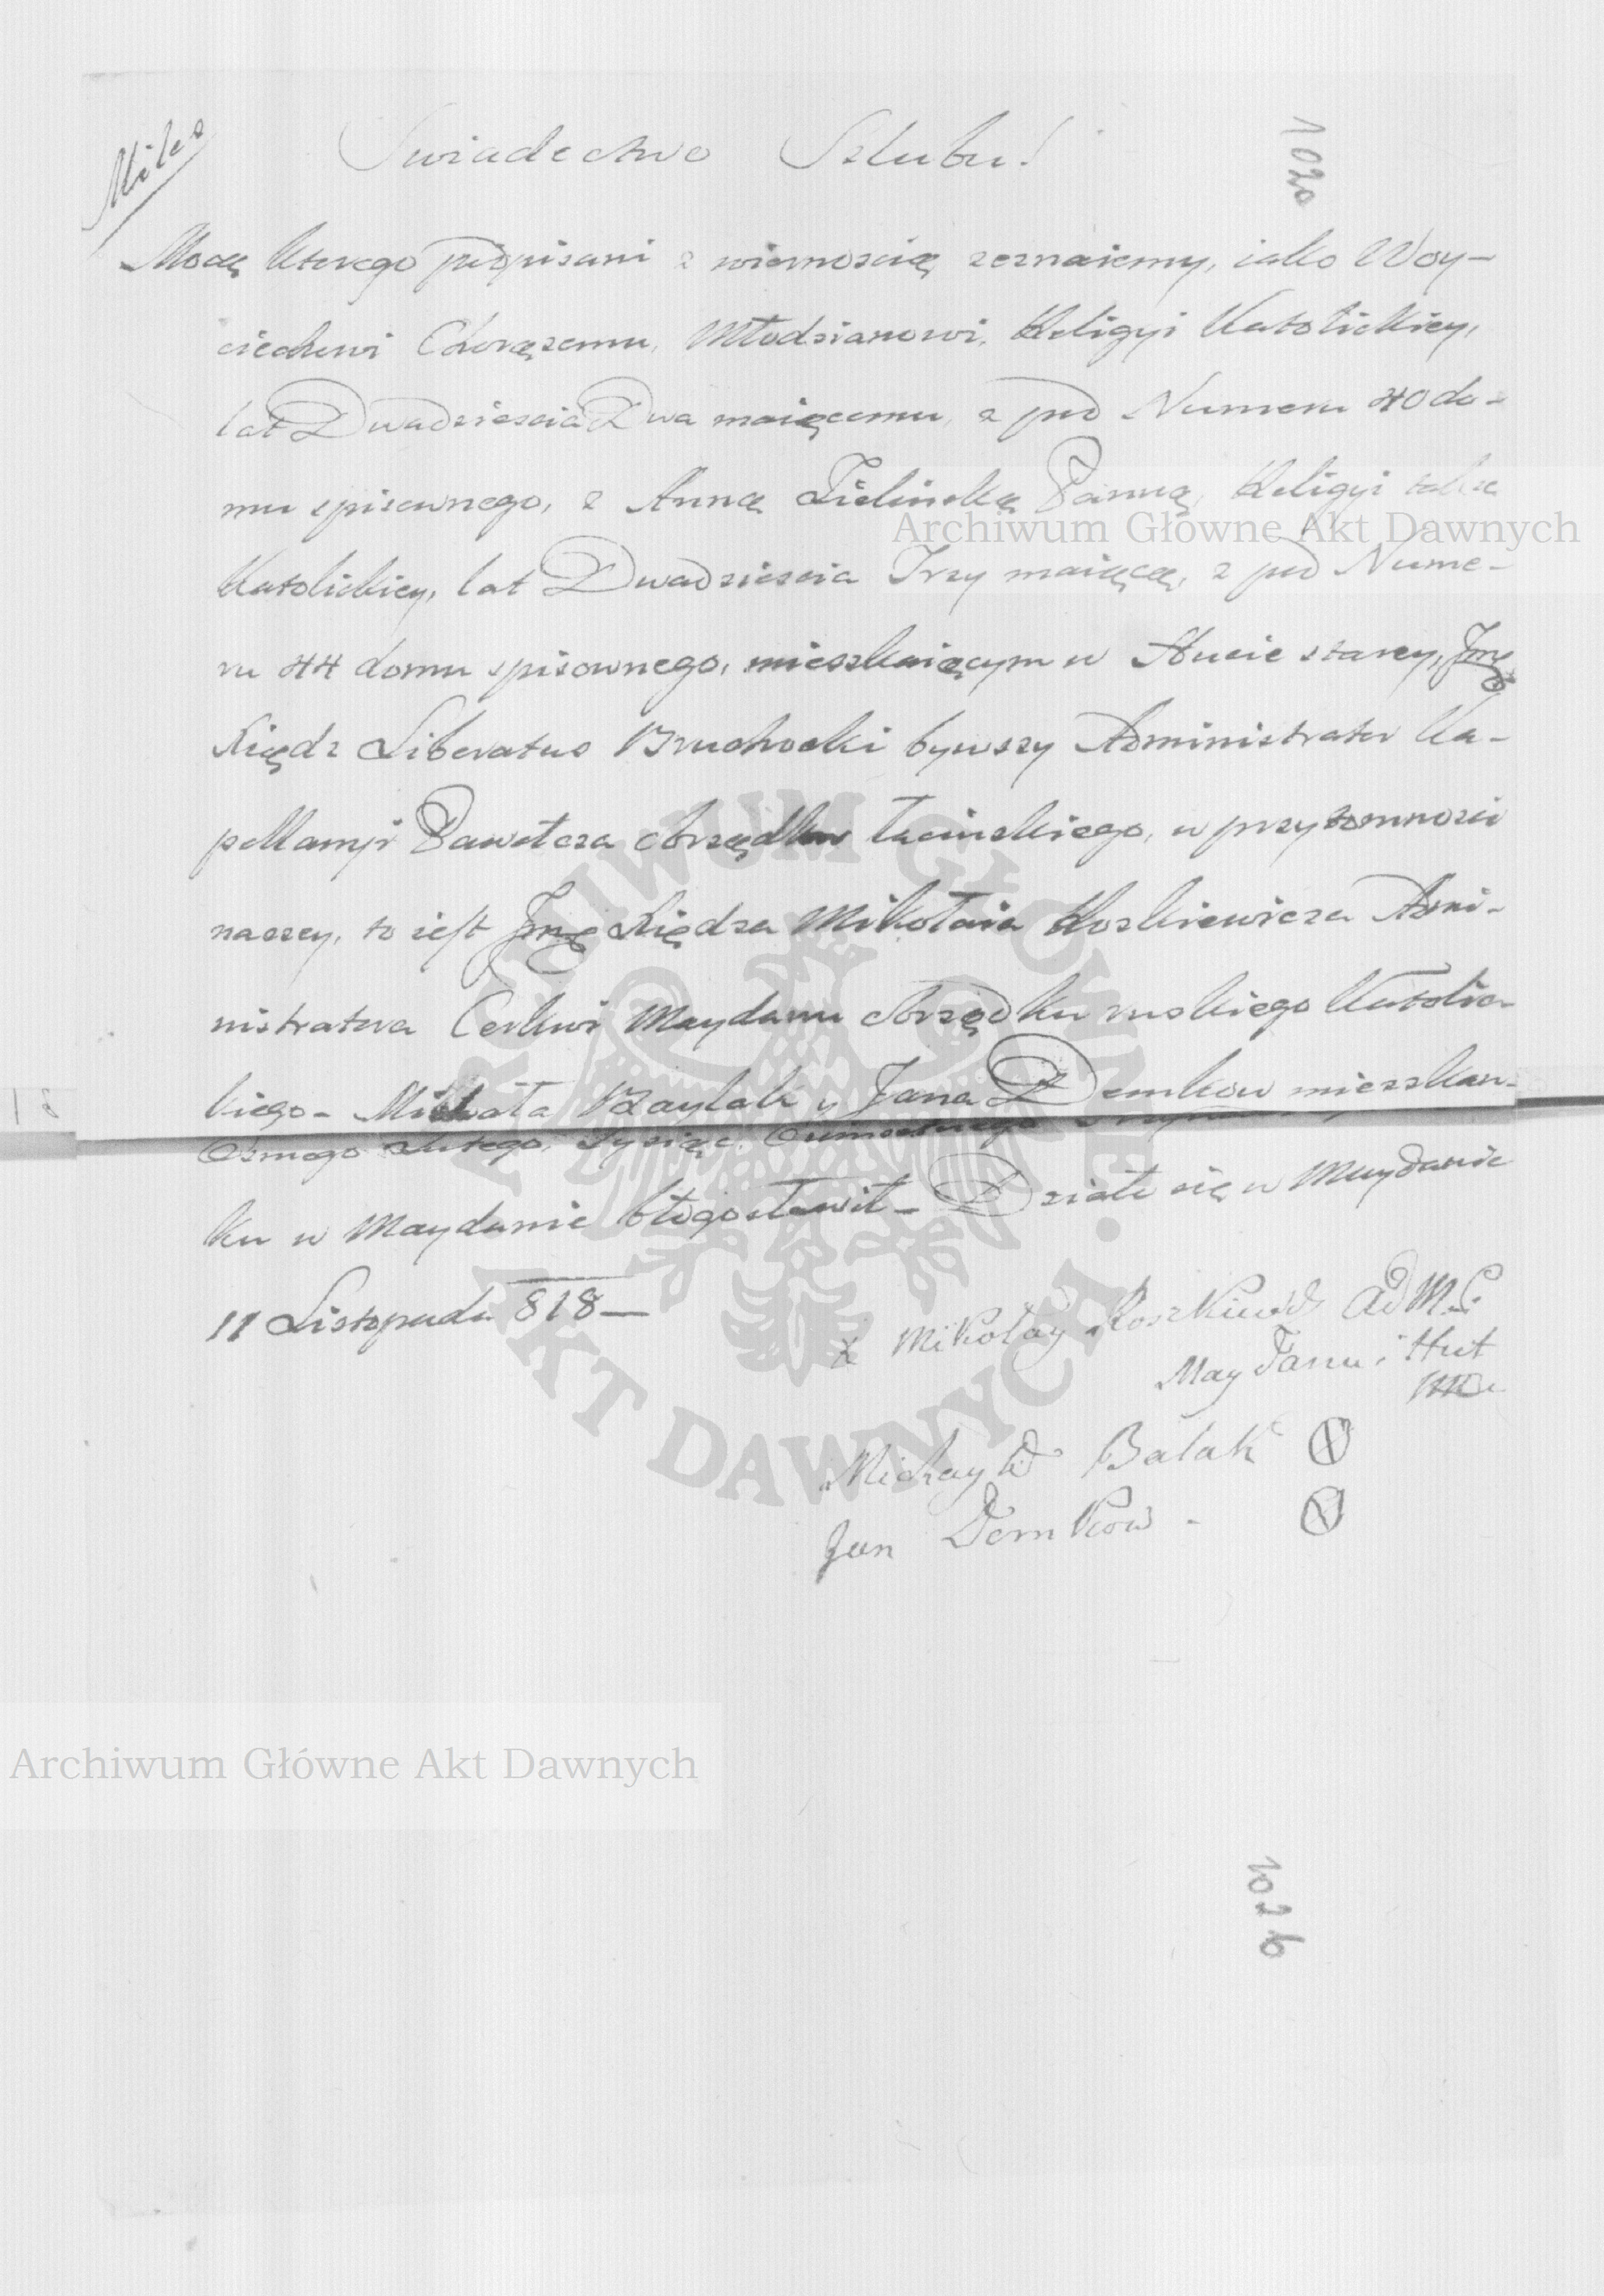 Miles
1020
Swiadectwo Szlubu!
Mocą ktorego podpisani z wiernoscią zeznaiemy, iako Woy-
ciechowi Chorązemu, Młodzianowi, Religyi Katolickiey,
lat Dwadziescia Dwa maiącemu, z pod Numeru 40 do-
mu spisownego, z Anną Zielinską Panną, Religyi także
Archiwum Główne Akt Dawnych
Katolickiey, lat Dwadziescia Trzy maiącą, z pod Nume-
ru 44 domu spisownego, mieszkaiącym w Hucie starey, Jmę
Xiądz Liberatus Bruchocki bywszy Administrator Ka-
pellanyi Pawełcza obrządku łacinskiego, w przytomnosci
naszey, to iest Jmę Xiędza Mikołaia Roszkiewicza Admi-
nistratora Cerkwi Maydanu obrządku ruskiego Katolic-
kiego - Michała Baylak y Jana Demkow mieszkan-
Osmego Lutego, Tysiąc Osmsetnego
ku w Maydanie błogosławił - Działo się w Maydanie
11 Listopada 818 —
X Mikołay Roszkiewicz Adm. C.
Maydanu i Hut
Michayło Balak (X)
Jan Demkow - (X)
ARCHIWUM GŁÓWNE AKT DAWNYCH
Archiwum Główne Akt Dawnych
1026